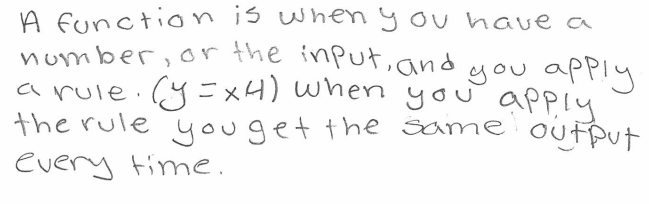 A function is when you have a
number, or the input, and you apply
a rule. (y=x4) when you apply
the rule you get the same output
every time.